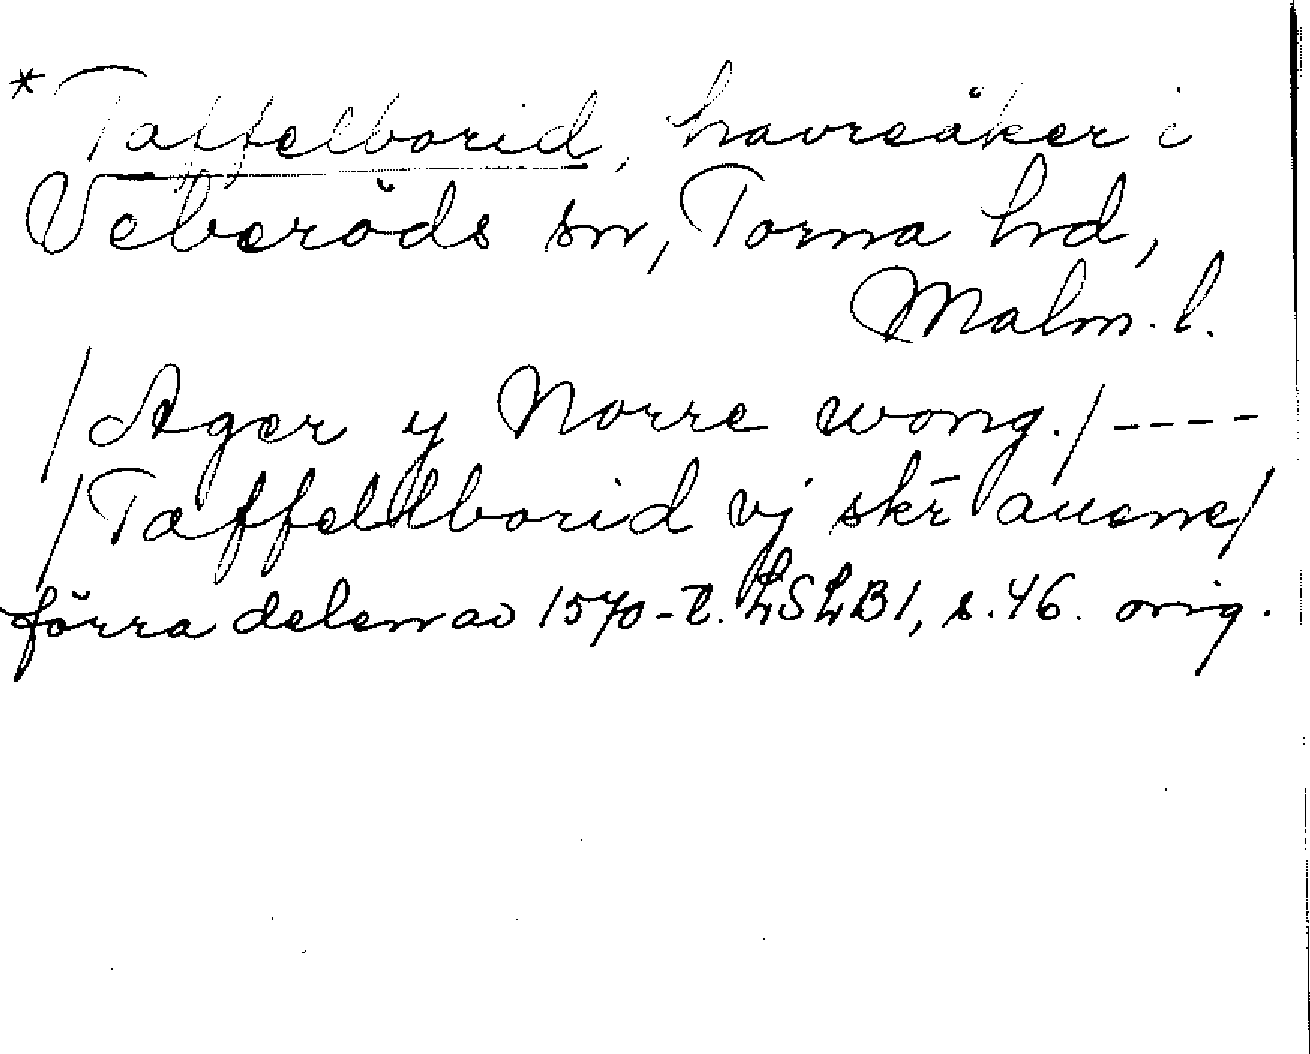 * Taffelborid, havreåker i
Veberöds sn, Torna hd,
Malm. l.
/Ager y Norre wong./----
/Taffellborid vj skē auene/
förra delen av 1570-t. LSLB1, s. 46. orig.